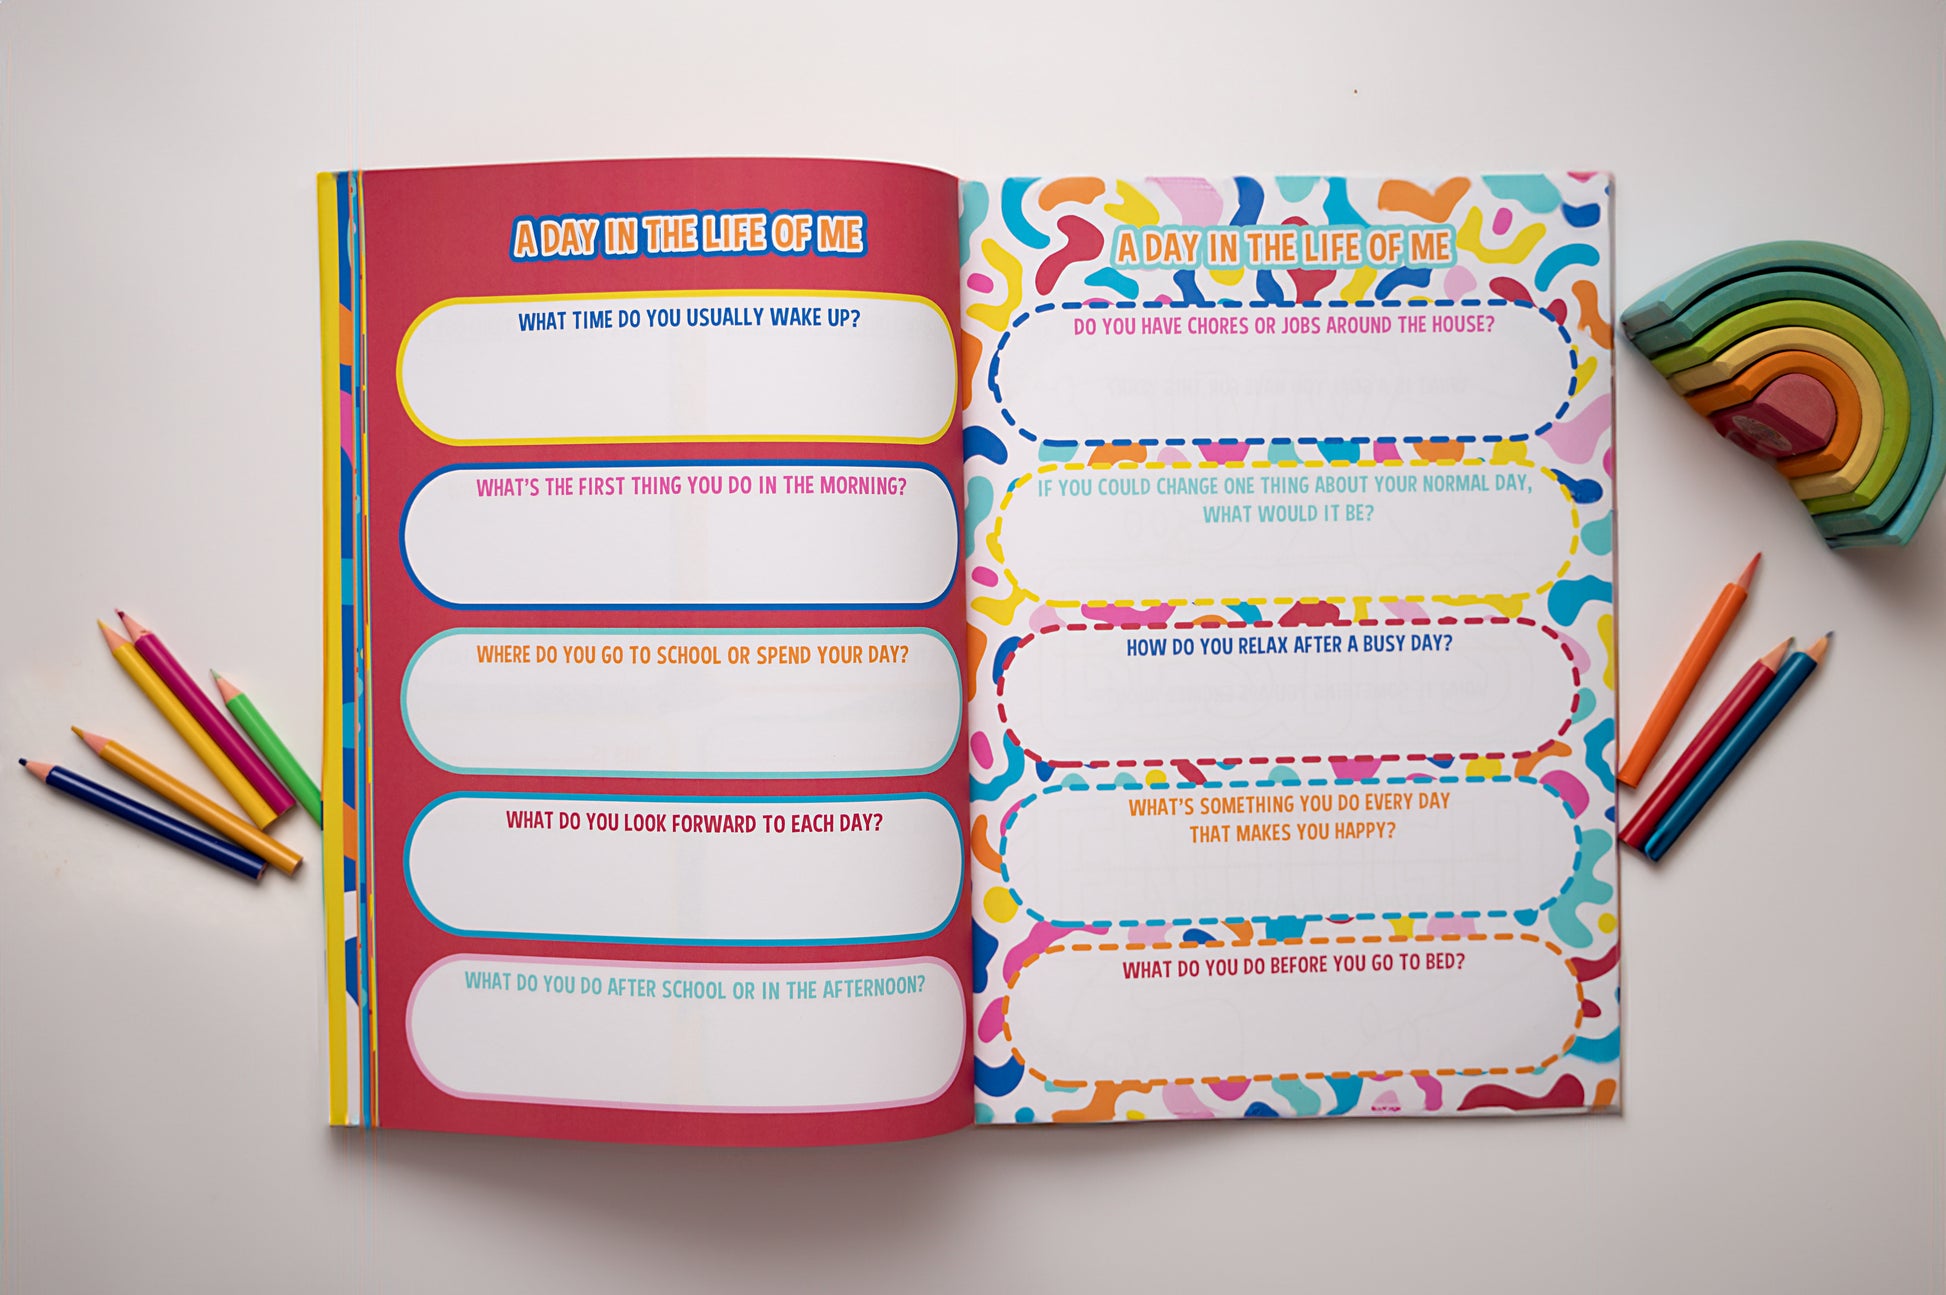 A DAY IN THE LIFE OF ME
WHAT TIME DO YOU USUALLY WAKE UP?
WHAT'S THE FIRST THING YOU DO IN THE MORNING?
WHERE DO YOU GO TO SCHOOL OR SPEND YOUR DAY?
WHAT DO YOU LOOK FORWARD TO EACH DAY?
WHAT DO YOU DO AFTER SCHOOL OR IN THE AFTERNOON?
A DAY IN THE LIFE OF ME
DO YOU HAVE CHORES OR JOBS AROUND THE HOUSE?
IF YOU COULD CHANGE ONE THING ABOUT YOUR NORMAL DAY,
WHAT WOULD IT BE?
HOW DO YOU RELAX AFTER A BUSY DAY?
WHAT'S SOMETHING YOU DO EVERY DAY
THAT MAKES YOU HAPPY?
WHAT DO YOU DO BEFORE YOU GO TO BED?